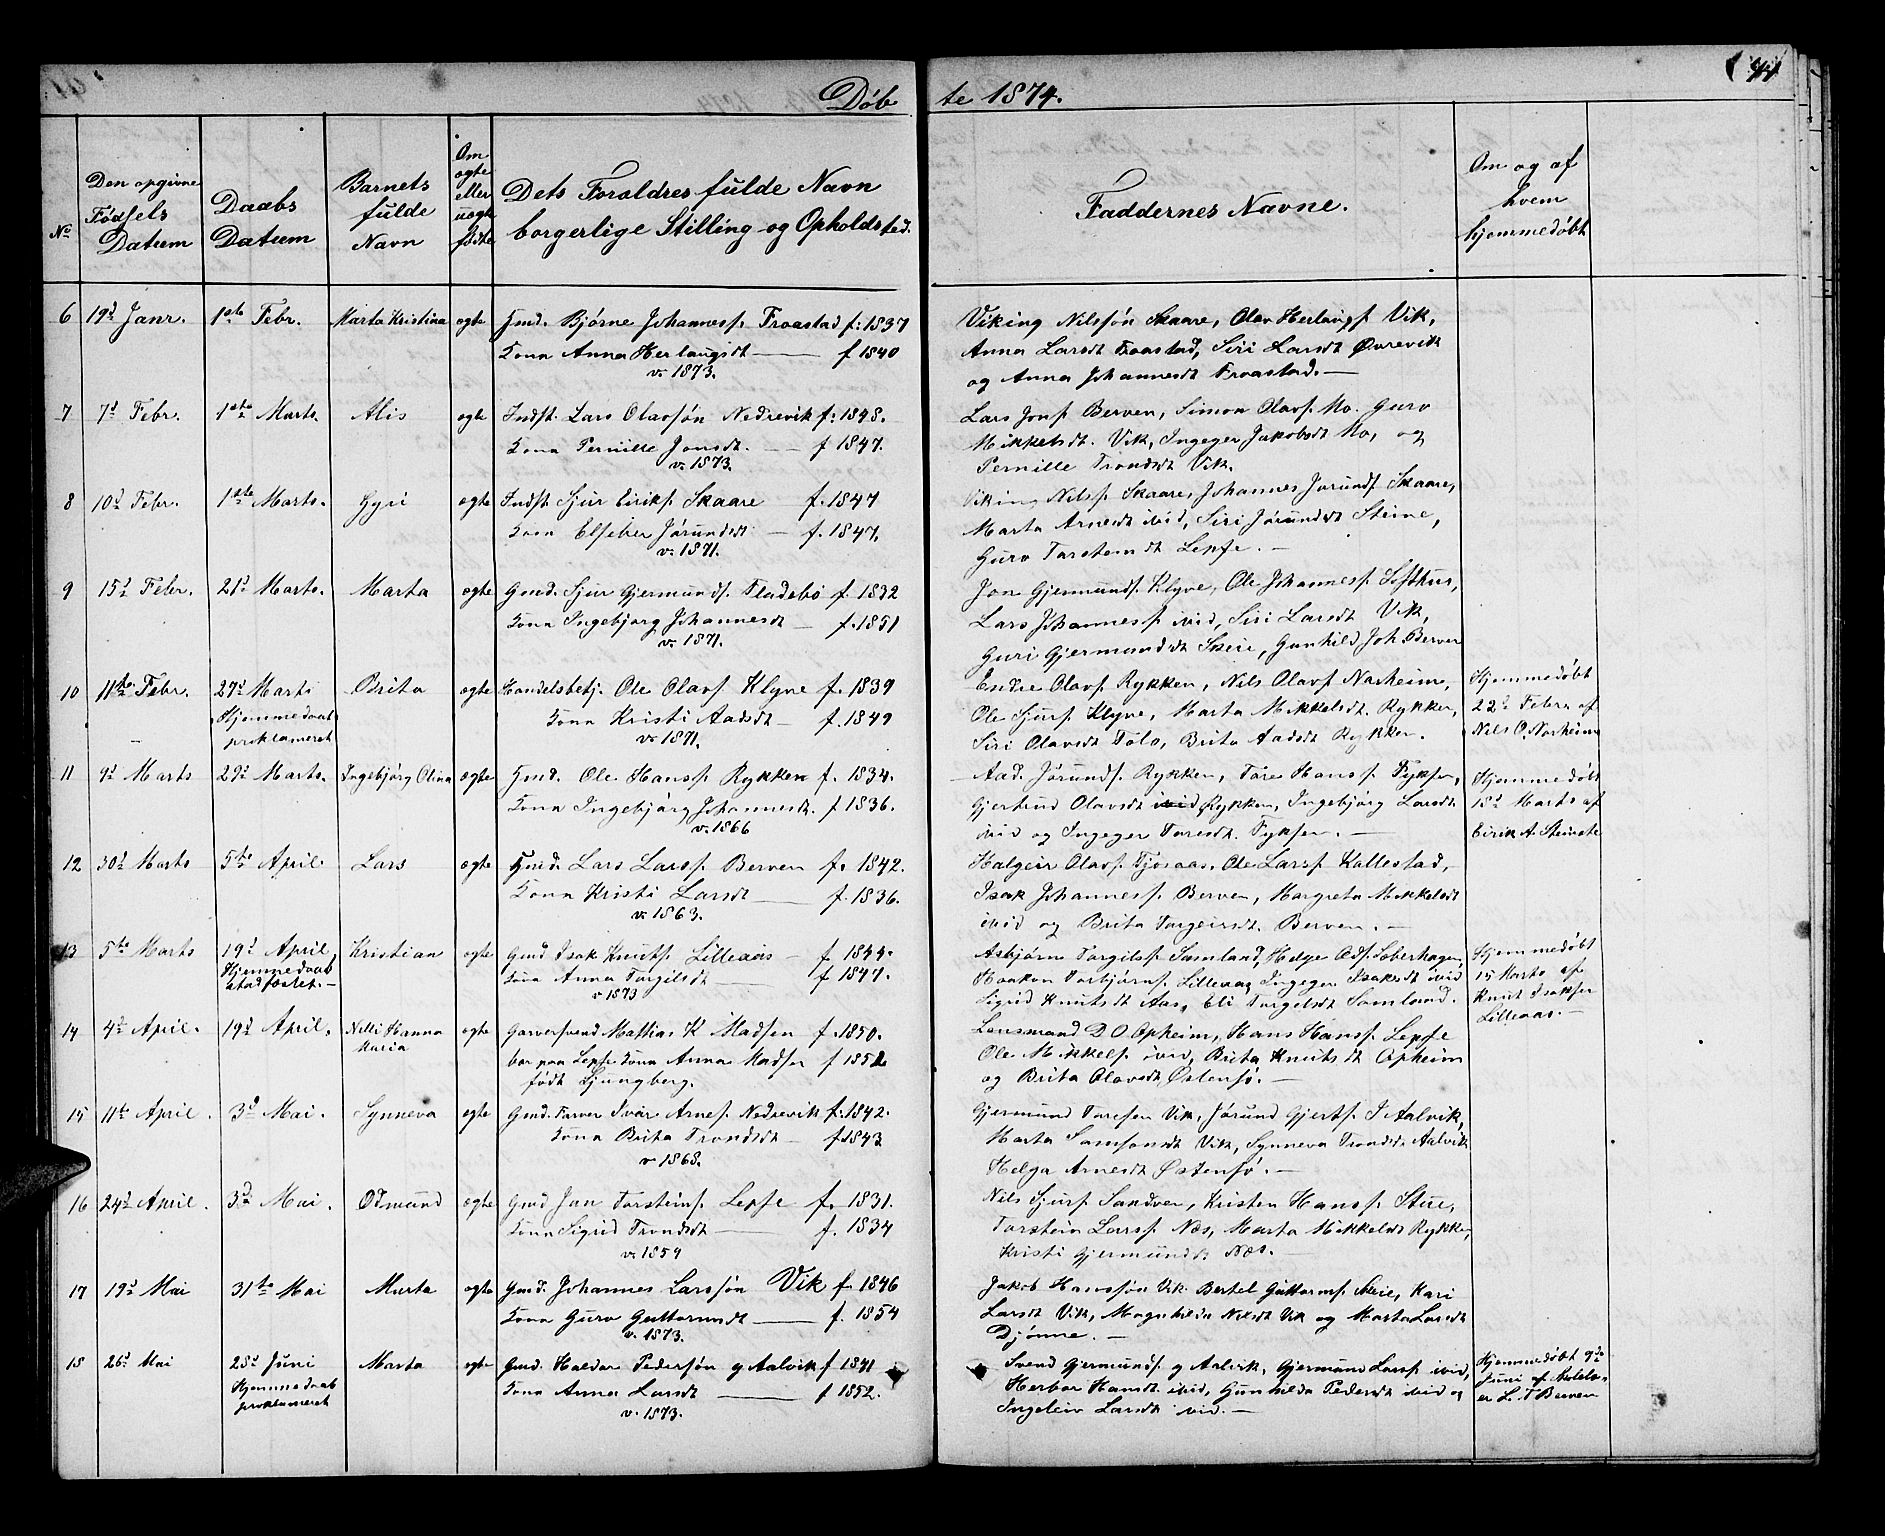 Døbte 1874.
44
No
Den opgivne Fødsels Datum
Daabs Datum
Barnets fulde Navn
Om ægte eller uægte fødte
Dets Forældres fulde Navn
borgerlige Stilling og Opholdsted.
Faddernes Navne.
Om og af hvem hjemmedøbt
6 19d Janr. 1ste Febr. Marta Kristina ægte Gmd. Bjørne Johannesf. Fraastad f: 1837
Kona Anna Herlaugsdt — f 1840
v. 1873.
Viking Nilssøn Skaare, Olav Herlaugsf Vik,
Anna Larsdt Fraastad, Siri Larsdt Øvrevik
og Anna Johannesdt Fraastad. —
7 7d Febr. 1ste Marts. Alis ægte Indst. Lars Olavsøn Nedrevik f: 1848.
Kona Pernille Jonsdt. — f 1847.
v. 1873.
Lars Jonsf Berven, Simon Olavsf Mo. Guro
Mikkelsdt. Vik, Ingeger Jakobsdt Mo, og
Pernille Trondsdt Vik.
8 10d Febr. 1ste Marts. Gyri ægte Indst Sjur Eiriksf. Skaare f. 1847
Kona Elseber Jørundsdt — f. 1847.
v. 1871.
Viking Nilsf Skaare, Johannes Jørundsf Skaare,
Marta Arnesdt ivid, Siri Jørundsdt Steine,
Guro Torsteinsdt Lepse. —
9 15d Febr. 21d Marts. Marta ægte Gmd. Sjur Gjermundsf. Fladebø f. 1832
Kona Ingebjørg Johannesdt — f. 1851
v. 1871.
Jon Gjermundsf. Klyve, Ole Johannesf. Lofthus,
Lars Johannesf. ivid, Siri Larsdt Vik,
Guri Gjermundsdt Skeie, Gunhild Joh. Berven
10 11te Febr. 27d Marts Brita ægte Handelsbetj. Ole Olavsf Klyve f. 1839
Hjemmedaab proklameret
Kona Kristi Aadsdt — f. 1849
v. 1871.
Endre Olavsf. Rykken, Nils Olavsf Norheim,
Ole Sjursf. Klyve, Marta Mikkelsdt. Rykken,
Siri Olavsdt Tolo, Brita Aadsdt Rykken.
Hjemmedøbt
22d Febr. af
Nils O. Norheim
11 9d Marts 29d Marts. Ingebjørg Olina ægte Gmd. Ole Hansf. Rykken f. 1834.
Kona Ingebjørg Johannesdt. f. 1836.
v. 1866
Aad Jørundsf. Rykken, Tore Hansf Fyksen,
Gjertrud Olavsdt ivid Rykken, Ingebjørg Larsdt
ivid og Ingeger Toresdt. Fyksen. —
Hjemmedøbt
18d Marts af
Eirik A. Steinstø
12 30d Marts 5te April Lars ægte Gmd. Lars Larsf. Berven f. 1842.
Kona Kristi Larsdt — f. 1836.
v. 1863.
Halgeir Olavsf Fjosaas, Ole Larsf. Kallestad,
Isak Johannesf. Berven, Margreta Mikkelsdt
ivid og Brita Torgeirsdt. Berven. —
13 5te Marts 19d April Kristian ægte Gmd Isak Knutsf. Lilleaas — f 1844.
Hjemmedaab stadfæstet. —
Kona Anna Torgilsdt — f 1847.
v 1873
Asbjørn Torgilsf Samland, Helge Odsf. Soberhagen,
Haakon Torbjørnsf. Lilleaas, Ingeger Isaksdt ivid
Sigrid Knutsdt Aas, Eli Torgilsdt Samland.
Hjemmedøbt
15 Marts af
Knut Isaksen
Lilleaas. —
14 4d April. 19d April. Nelli Hanna Maria ægte Garversvend Mathias K Madsen f. 1850.
bor paa Lepse Kona Anna Madsen f 1852
født Ljungberg.
Lensmand D O. Opheim, Hans Hansf. Lepse
Ole Mikkelsf. ivid, Brita Knutsdt Opheim
og Brita Olavsdt Østensø. —
15 11te April. 3d Mai. Synneva ægte Gmd. Farver Ivar Arnesf. Nedrevik f. 1842.
Kona Brita Trondsdt — f 1843
v 1868.
Gjermund Toresen Vik, Jørund Gjertsf. I Aalvik,
Marta Samsonsdt Vik, Synneva Trondsdt Aalvik
Helga Arnesdt Østensø. —
16 24d April. 3d Mai. Odmund ægte Gmd Jan Torsteinsf. Lepse f. 1831.
Kona Sigrid Trondsdt — f. 1834
v. 1859
Nils Sjursf Sandven, Kristen Hansf. Stue,
Torstein Larsf. Næs, Marta Mikkelsdt Rykken,
Kristi Gjermundsdt Næs. —
17 19d Mai 31te Mai Marta ægte Gmd. Johannes Larssøn Vik f. 1846
Kona Guro Guttormsdt — f. 1854
v. 1873.
Jakob Hanssøn Vik Bertel Guttormsf Skeie, Kari
Larsdt Vik, Magnhilda Nilsdt Vik og Marta Larsdt
Djønne. —
18 26d Mai 28d Juni Marta ægte Gmd. Haldor Pedersøn y Aalvik f 1841
Hjemmedaab proklameret
Kona Anna Larsdt — f 1852.
v. 1873.
Svend Gjermundsf. y Aalvik, Gjermund Larsf ivid,
Herbor Hansdt ivid, Gunhilda Pedersdt ivid og
Ingeleiv Larsdt ivid. —
Hjemmedøbt 9de
Juni af Skolelær-
er L. T Berven